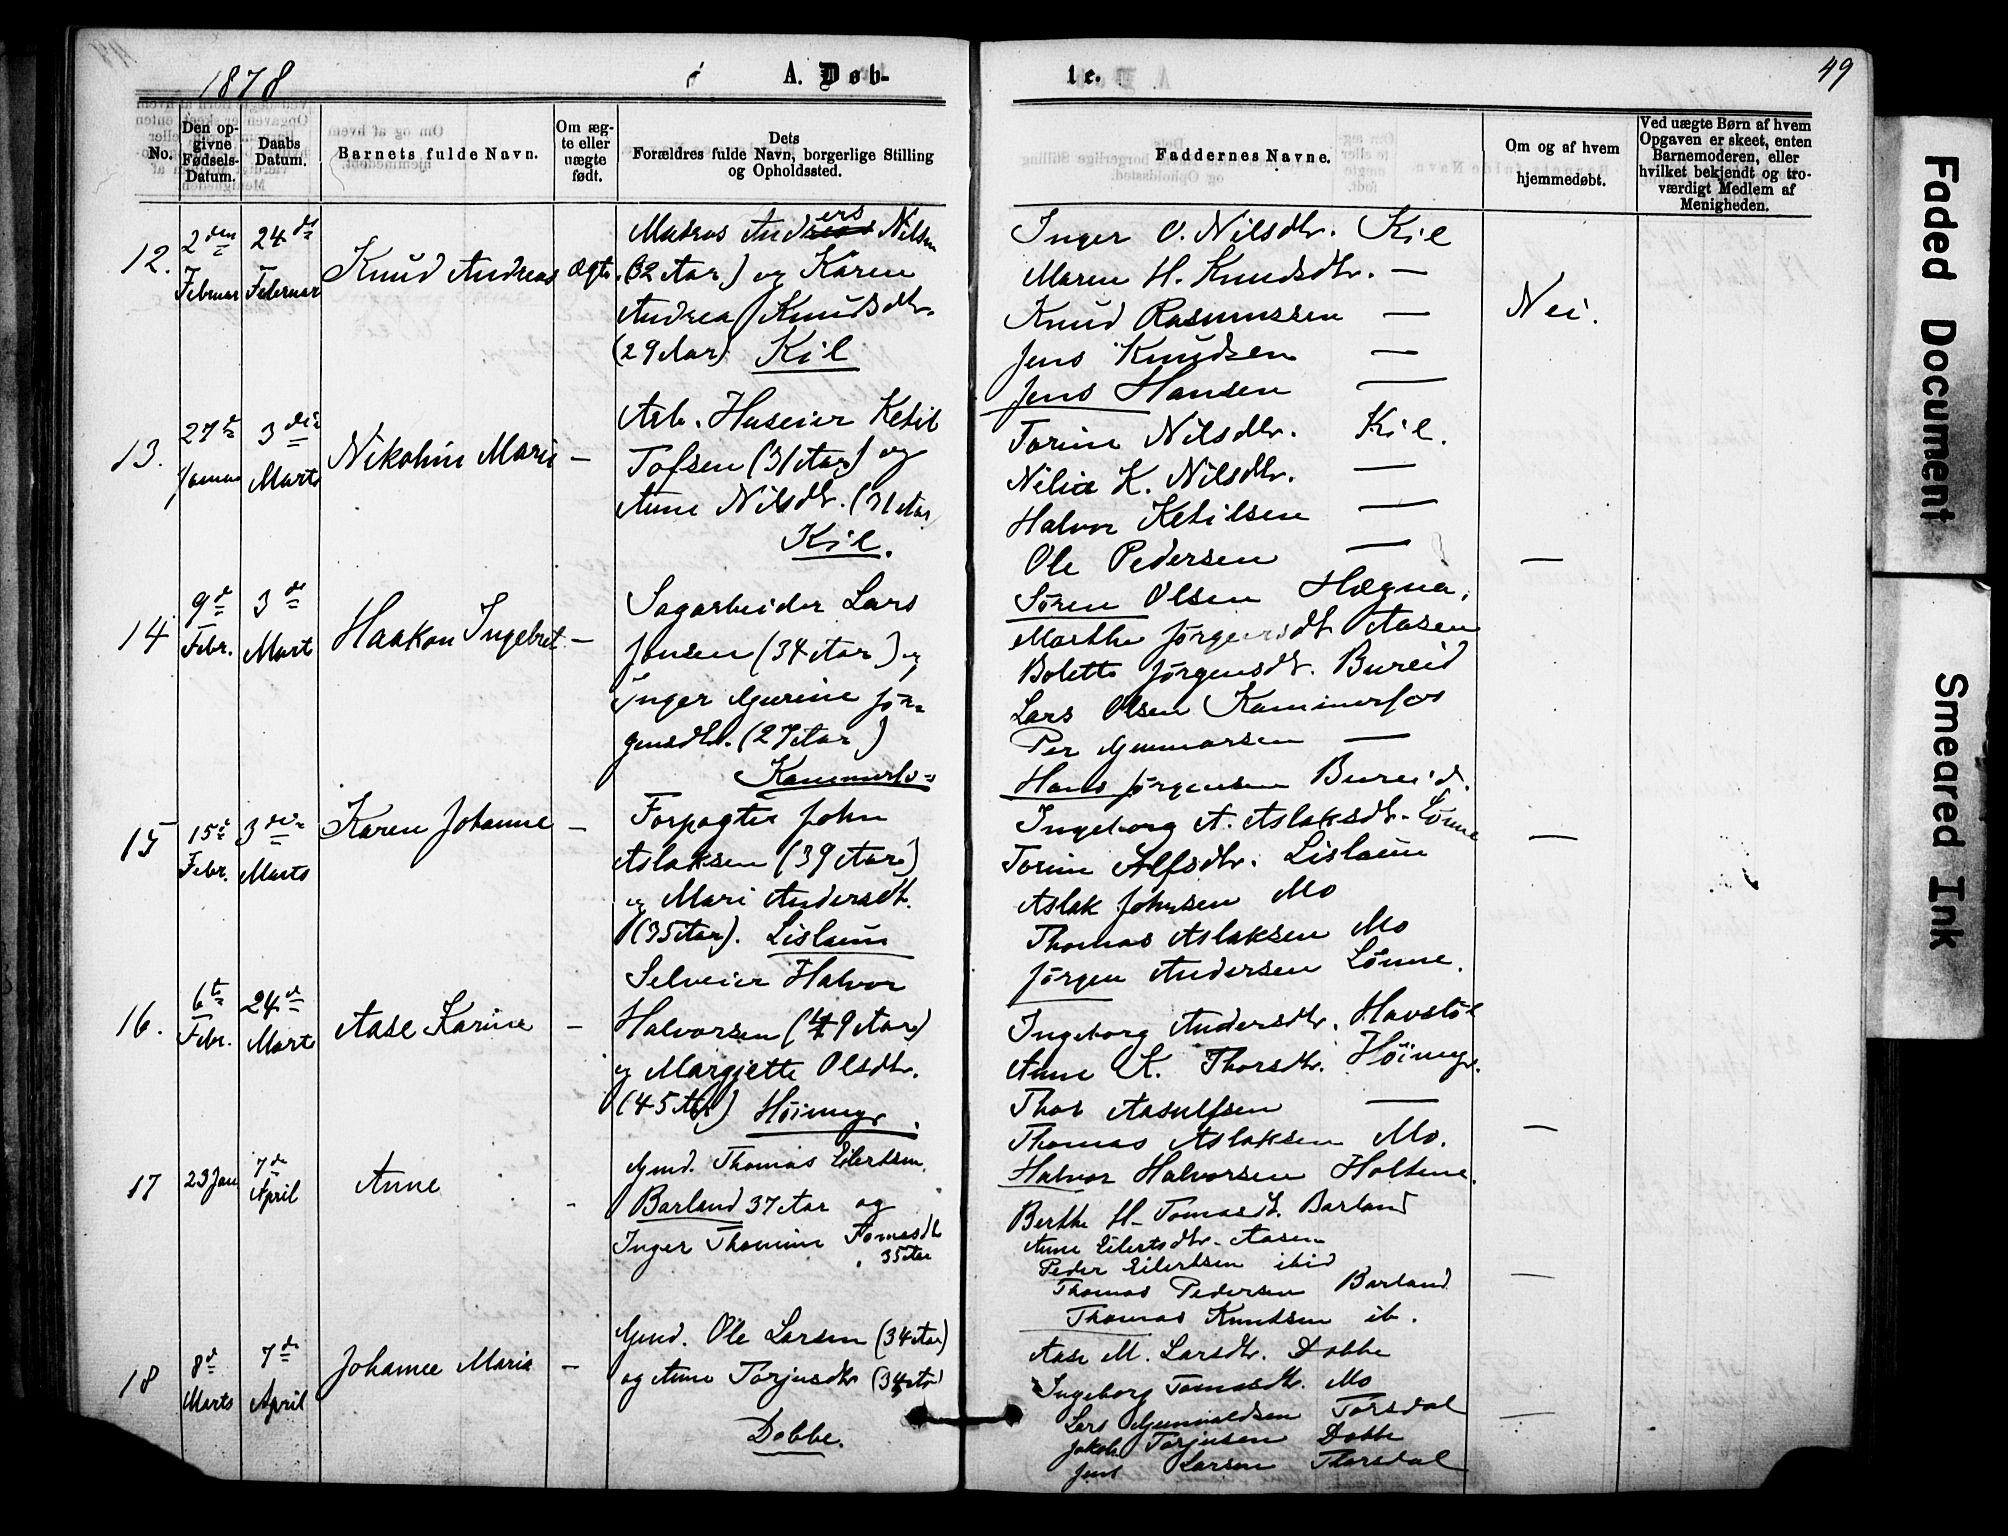 1878
A. Døb-
te.
49
No.
Den op-
givne
Fødsels-
Datum.
Daabs
Datum.
Barnets fulde Navn.
Om æg-
te eller
uægte
født.
Dets
Forældres fulde Navn, borgerlige Stilling
og Opholdssted.
Faddernes Navne.
Om og af hvem
hjemmedøbt.
Ved uægte Børn af hvem
Opgaven er skeet, enten
Barnemoderen, eller
hvilket bekjendt og tro-
værdigt Medlem af
Menigheden.
12.
2den
Februar
24de
Februar
Knud Andreas
Ægte
Matros Anders Nilsen
(32 Aar) og Karen
Andrea Knudsdtr.
(29 Aar) Kil
Inger O. Nilsdtr. Kil
Maren H. Knudsdtr. —
Knud Rasmussen —
Jens Knudsen —
Jens Hansen —
Nei.
13.
27de
Januar
3die
Marts
Nikoline Marie
—
Arb. Huseier Ketil
Tofsen (31 Aar) og
Anne Nilsdtr. (31 Aar
Kil.
Torine Nilsdtr. Kil.
Nilia K. Nilsdtr. —
Halvor Ketilsen —
Ole Pedersen —
Søren Olsen Hægna.
—
14
9de
Febr.
3de
Mart
Haakon Ingebret
—
Sagarbeider Lars
Jensen (34 Aar) og
Inger Gurine Jør-
gensdtr. (27 Aar)
Kammerfos
Marthe Jørgensdt. Aasen
Bolette Jørgensdtr. Bureid
Lars Olsen Kammerfos
Per Gunnarsen —
Hans Jørgensen Bureid.
15
15de
Febr.
3die
Marts
Karen Johanne
—
Forpagter John
Aslaksen (39 Aar)
og Mari Andersdt.
(35 Aar). Lislaun
Ingeborg A. Aslaksdtr. Lønne
Torine Alfsdtr. Lislaun
Aslak Johnsen Mo
Thomas Aslaksen Mo
Jørgen Andersen Lønne.
—
16.
6te
Febr.
24de
Mart
Aase Karine
—
Selveier Halvor
Halvorsen (49 Aar)
og Margjette Olsdtr.
(45 Aar) Høimyr.
Ingeborg Andersdtr. Havstøl
Anne K. Thorsdtr. Høimyr.
Thor Aasulfsen —
Thomas Aslaksen Mo.
Halvor Halvorsen Holtene.
—
17
23 Jan
7de
April
Anne
-
Gmd. Thomas Eilertsen
Barland 37 Aar og
Inger Thomine Tomasdt
35 Aar
Berthe H. Tomasdt. Barland
Anne Eilertsdtr. Aasen
Peder Eilertsen ibid
Thomas Pedersen Barland
Thomas Knutsen ib.
—
18
8de
Marts
7de
April
Johanne Maria
—
Gmd. Ole Larsen (34 Aar)
og Anne Torjusdtr (34 Aar)
Dobbe.
Aase M. Larsdtr. Dobbe
Ingeborg Tomasdtr. Mo
Lars Gunvaldsen Torsdal
Jakob Torjusen Dobbe
Jens Larsen Thorsdal
—
Faded Document
Smeared Ink